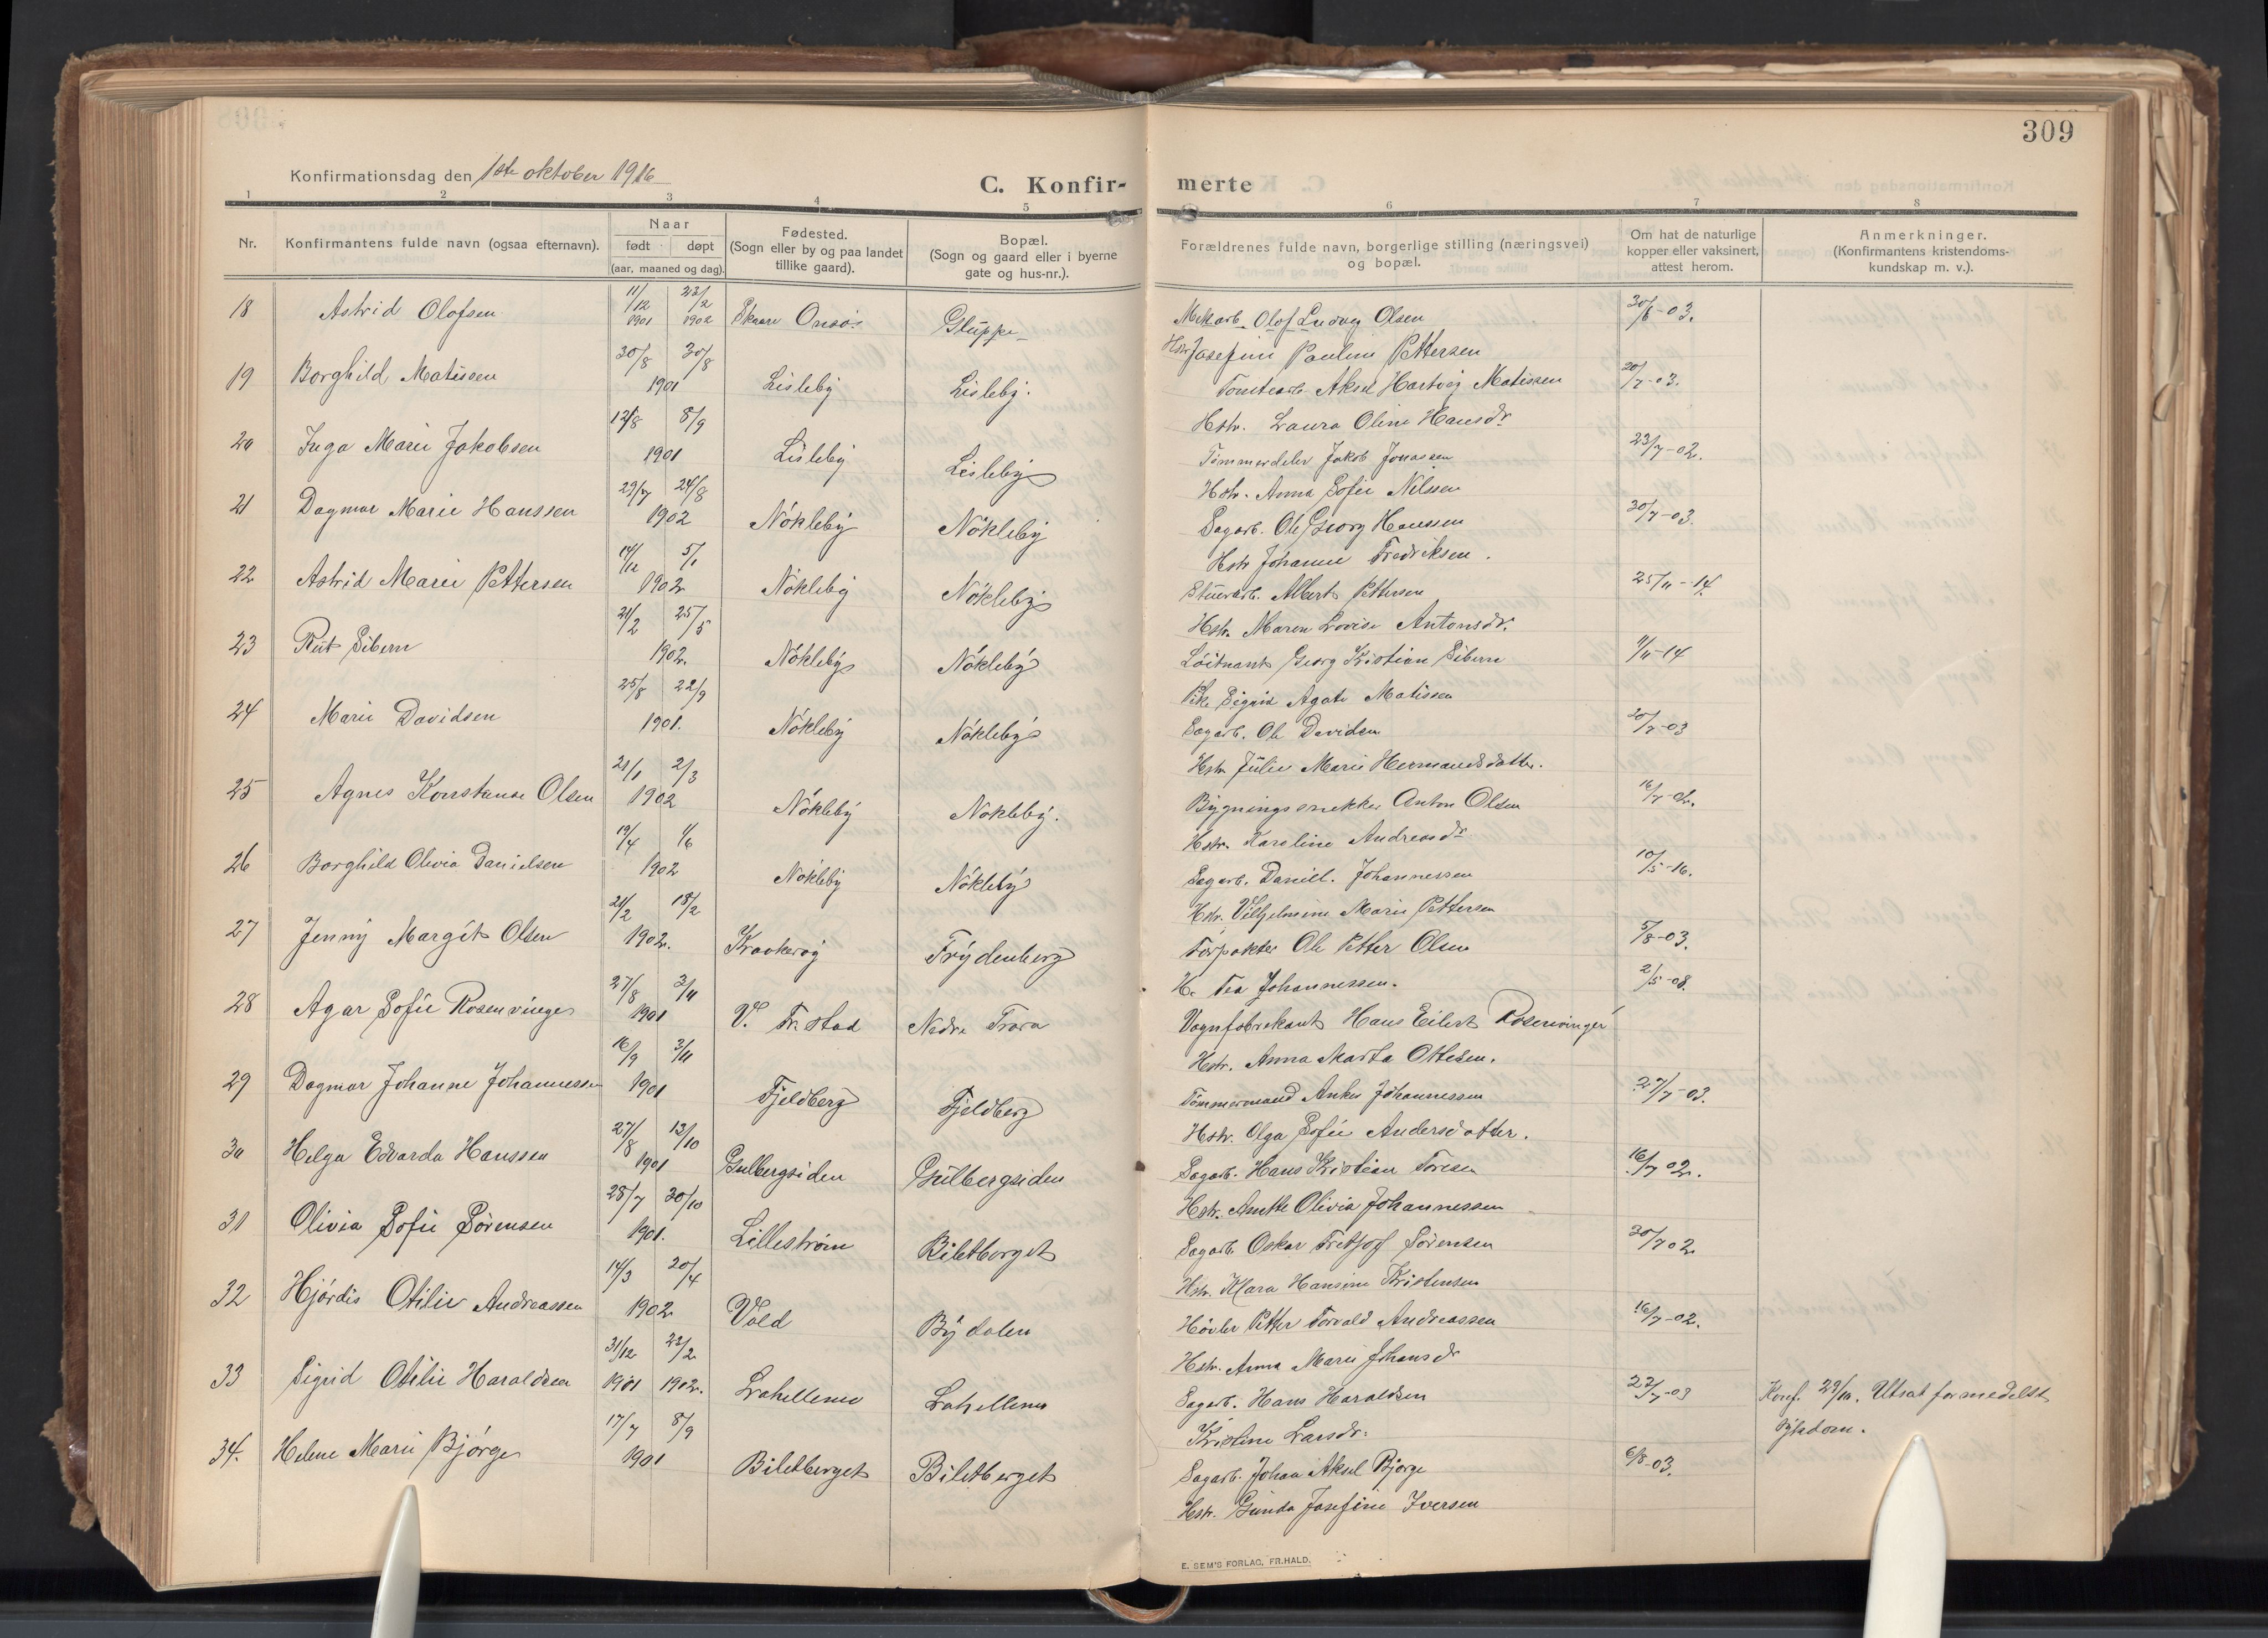 309
Konfirmationsdag den 1ste oktober 1916
C. Konfir-
merte
1 2 3 4 5 6 7 8
Nr.
Konfirmantens fulde navn (ogsaa efternavn).
Naar
født døpt
(aar, maaned og dag).
Fødested.
(Sogn eller by og paa landet
tillike gaard).
Bopæl.
(Sogn og gaard eller i byerne
gate og hus-nr.).
Forældrenes fulde navn, borgerlige stilling (næringsvei)
og bopæl.
Om hat de naturlige
kopper eller vaksinert,
attest herom.
Anmerkninger.
(Konfirmantens kristendoms-
kundskap m. v.).
18 Astrid Olofsen 11/12 1901 23/2 1902 Skaare Onsø Gluppe Mekarb. Olof Ludvig Olsen 30/6-03.
Hstr Josefine Pauline Pettersen
19 Borghild Matissen 30/8 30/8 1901 Lisleby Lisleby. Tomtearb. Aksel Hartvig Matissen 20/7-03.
Hstr. Laura Oline Hansdr
20 Inga Marie Jakobsen 12/8 8/9 1901 Lisleby Lisleby Tømmerdeler Jakob Jonassen 23/7-02.
Hstr. Anna Sofie Nilssen
21 Dagmar Marie Hanssen 29/7 24/8 1902 Nökleby Nökleby Sagarb. Ole Georg Hanssen 30/7-03.
Hstr Johanne Fredriksen.
22 Astrid Marie Pettersen 14/12 5/1 1902 Nökleby Nökleby Stuerarb. Albert Pettersen 25/11-14.
Hstr. Maren Lovise Antonsdr.
23 Rut Sibern 21/2 25/5 1902. Nökleby Nökleby Löitnant Georg Kristian Sibern 11/11-14
Pike Sigrid Agate Matissen
24 Marie Davidsen 25/8 22/9 1901. Nökleby Nökleby Sagarb. Ole Davidsen 20/7-03
Hstr. Julie Marie Hermandsdatter.
25 Agnes Konstanse Olsen 21/1 2/3 1902 Nökleby Nökleby. Bygningssnekker Anton Olsen 16/7-02.
Hstr. Karoline Andreasdr
26 Borghild Olivia Danielsen 19/4 1/6 1902 Nökleby Nökleby Sagarb. Daniel. Johannessen 10/5-16.
Hstr. Vilhelmine Marie Pettersen
27 Jenny Margit Olsen 21/2 18/2 1902. Kraakeröy Frydenberg Forpakter Ole Petter Olsen 5/8-03.
H. Tea Johannessen. 2/5-08.
28 Agar Sofie Rosenvinge 27/8 3/11 1901 V. Fr.stad Nedre Trara Vognfabrikant Hans Eilert Rosenvinge
Hstr. Anna Marta Ottesen.
29 Dagmar Johanne Johannessen 16/9 3/11 1901 Fjeldberg Fjeldberg Tömmermand Anker Johannessen 27/7-03.
Hstr. Olga Sofie Andersdatter.
30 Helga Edvarda Hanssen 27/8 13/10 1901 Gulbergsiden Gulbergsiden Sagarb. Hans Kristian Toresen 16/7 02.
Hstr. Anette Olivia Johannessen
31 Olivia Sofie Sörensen 28/7 20/10 1901. Lilleström Biletberget Sagarb. Oskar Fretjof Sörensen 30/7 02
Hstr. Klara Hansine Kristensen
32 Hjördis Otilie Andreassen 14/3 20/4 1902 Vold Bydalen Hövler Petter Torvald Andreassen 16/7-02.
Hstr. Anna Marie Johansdr
33 Sigrid Otilie Haraldsen 31/12 1901 23/2 1902. Lahellemo Lahellemo Sagarb. Hans Haraldsen 22/7-03 Konf. 29/10. Utsat formedelst
Kristine Larsdr. sykdom.
34. Helene Marie Bjørge 17/7 8/9 1901 Biletberget Biletberget Sagarb. Johan Aksel Bjørge 6/8-03.
Hstr. Gunda Josefine Iversen
E. SEM'S FORLAG, FR.HALD.